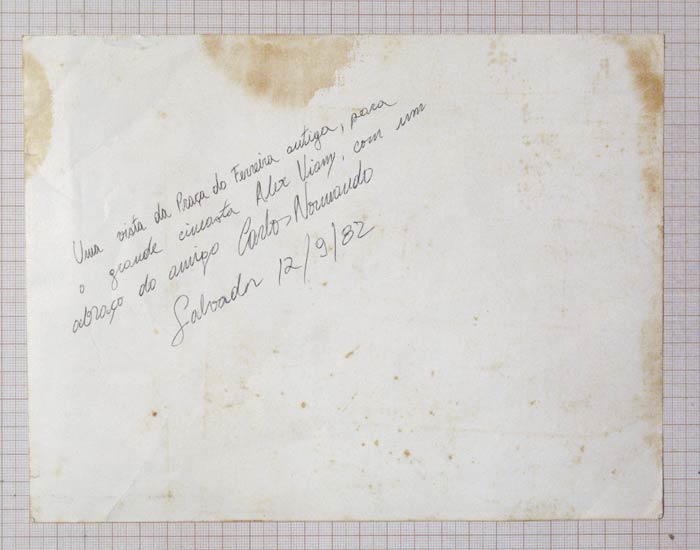 Uma vista da Praça do Ferreira antiga, para
o grande cineasta Alex Viany, com um
abraço do amigo Carlos Normando
Salvador 12/9/82